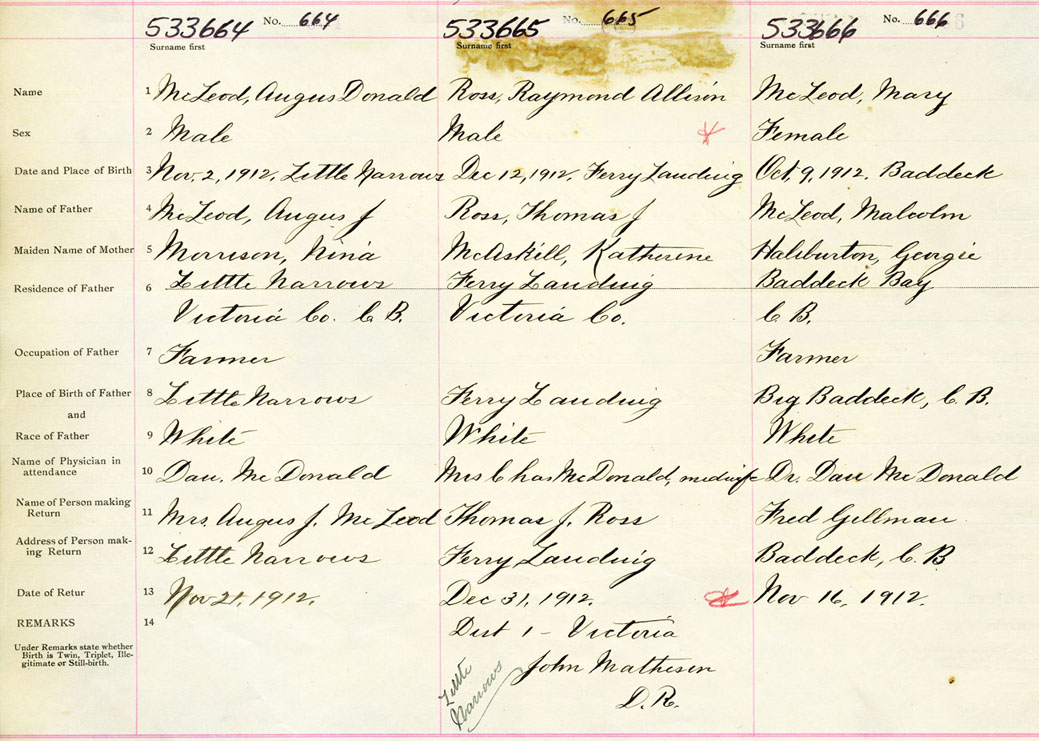 533664 No. 664 533665 No. 665 533666 No. 666
Surname first Surname first Surname first
Name 1 McLeod, Angus Donald Ross, Raymond Allison McLeod, Mary
Sex 2 Male Male Female
Date and Place of Birth 3 Nov. 2, 1912, Little Narrows Dec 12, 1912. Ferry Landing Oct, 9, 1912. Baddeck
Name of Father 4 McLeod, Angus J Ross, Thomas J McLeod, Malcolm
Maiden Name of Mother 5 Morrison, Nina McAskill, Katherine Haliburton, Georgie
Residence of Father 6 Little Narrows Ferry Landing Baddeck Bay
Victoria Co. C B. Victoria Co. C B.
Occupation of Father 7 Farmer Farmer
Place of Birth of Father 8 Little Narrows Ferry Landing Big Baddeck, C. B.
and
Race of Father 9 White White White
Name of Physician in
attendance 10 Dan. McDonald Mrs Chas McDonald, midwife Dr. Dan MacDonald
Name of Person making
Return 11 Mrs. Angus J. McLeod Thomas J. Ross Fred Gillman
Address of Person mak-
ing Return 12 Little Narrows Ferry Landing Baddeck, C. B
Date of Retur 13 Nov 21, 1912. Dec 31, 1912. Nov 16, 1912.
REMARKS 14 Dist 1 - Victoria
Under Remarks state whether
Birth is Twin, Triplet, Ille-
gitimate or Still-birth.
John Matheson
D. R.
Little
Narrows